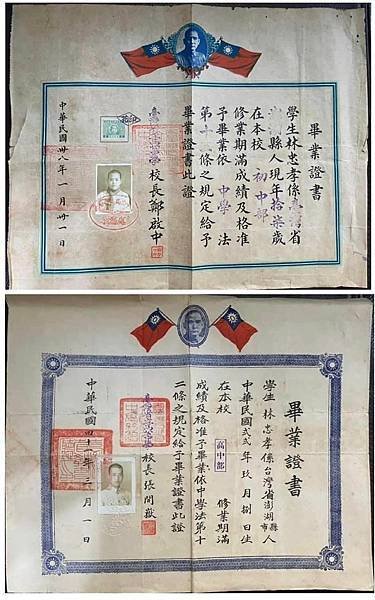 畢業證書
學生林忠孝係臺灣省
湖縣人現年拾柒歲
在本校初中部
修業期滿成績及格准
予畢業依中學法
第十 條之規定給予
畢業證書此證
校長鄭啟中
中華民國卅八年一月卅一日
畢業證書
學生林忠孝係台灣省澎湖縣市人
中華民國弍弍年玖月捌日生
在本校高中部修業期滿
成績及格准予畢業依中學法第十
二條之規定給予畢業證書此證
校長張 嶽
中華民國四十 年三月一日